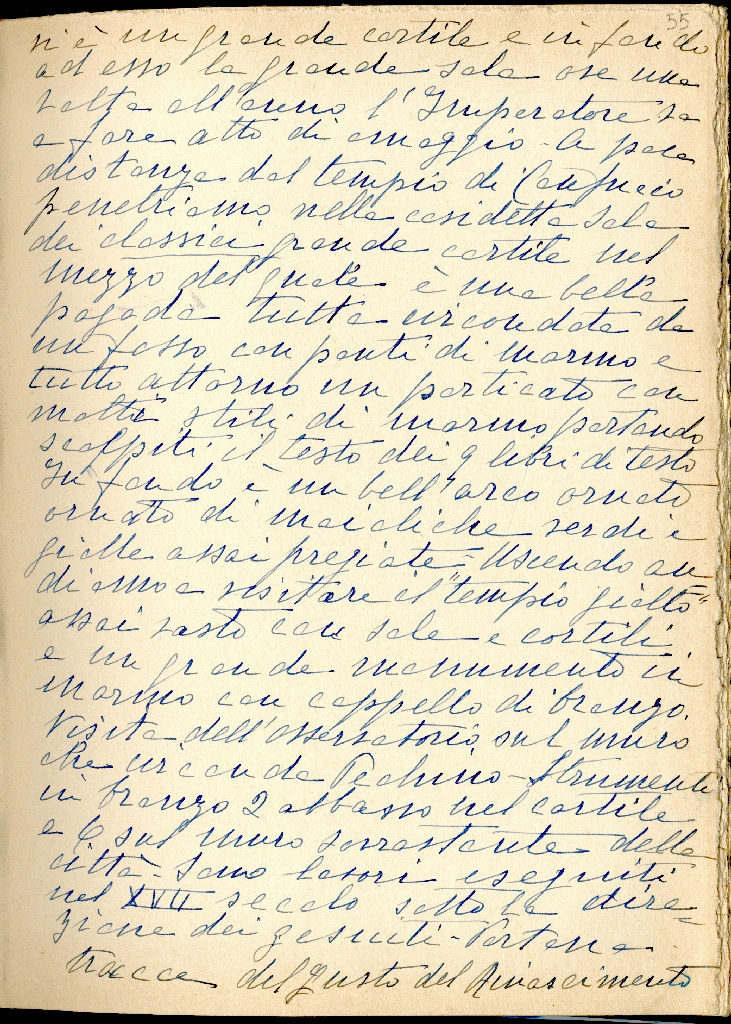 55
vi è un grande cortile e in fondo
ad esso la grande sala ove una
volta all'anno l'Imperatore va
a fare atto di omaggio - A poca
distanza dal tempio di Confucio
penetriamo nella cosidetta Sala
dei classici grande cortile nel
mezzo del quale è una bella
pagoda tutta circondata da
un fosso con ponti di marmo e
tutto attorno un porticato con
molte stili di marmo portando
scolpiti il testo dei 9 libri di testo
In fondo è un bell'arco ornato
ornato di maioliche verdi e
gialle assai pregiate - Uscendo an=
diamo a visitare il "tempio giallo"
assai vasto con sale e cortili
e un grande monumento in
marmo con cappello di bronzo.
Visita dell'osservatorio sul muro
che circonda Pechino - Strumenti
in bronzo 2 abbasso nel cortile
e 6 sul muro sovrastante della
città - Sono lavori eseguiti
nel XVII secolo sotto la dire=
zione dei gesuiti - Portano
tracce del gusto del Rinascimento